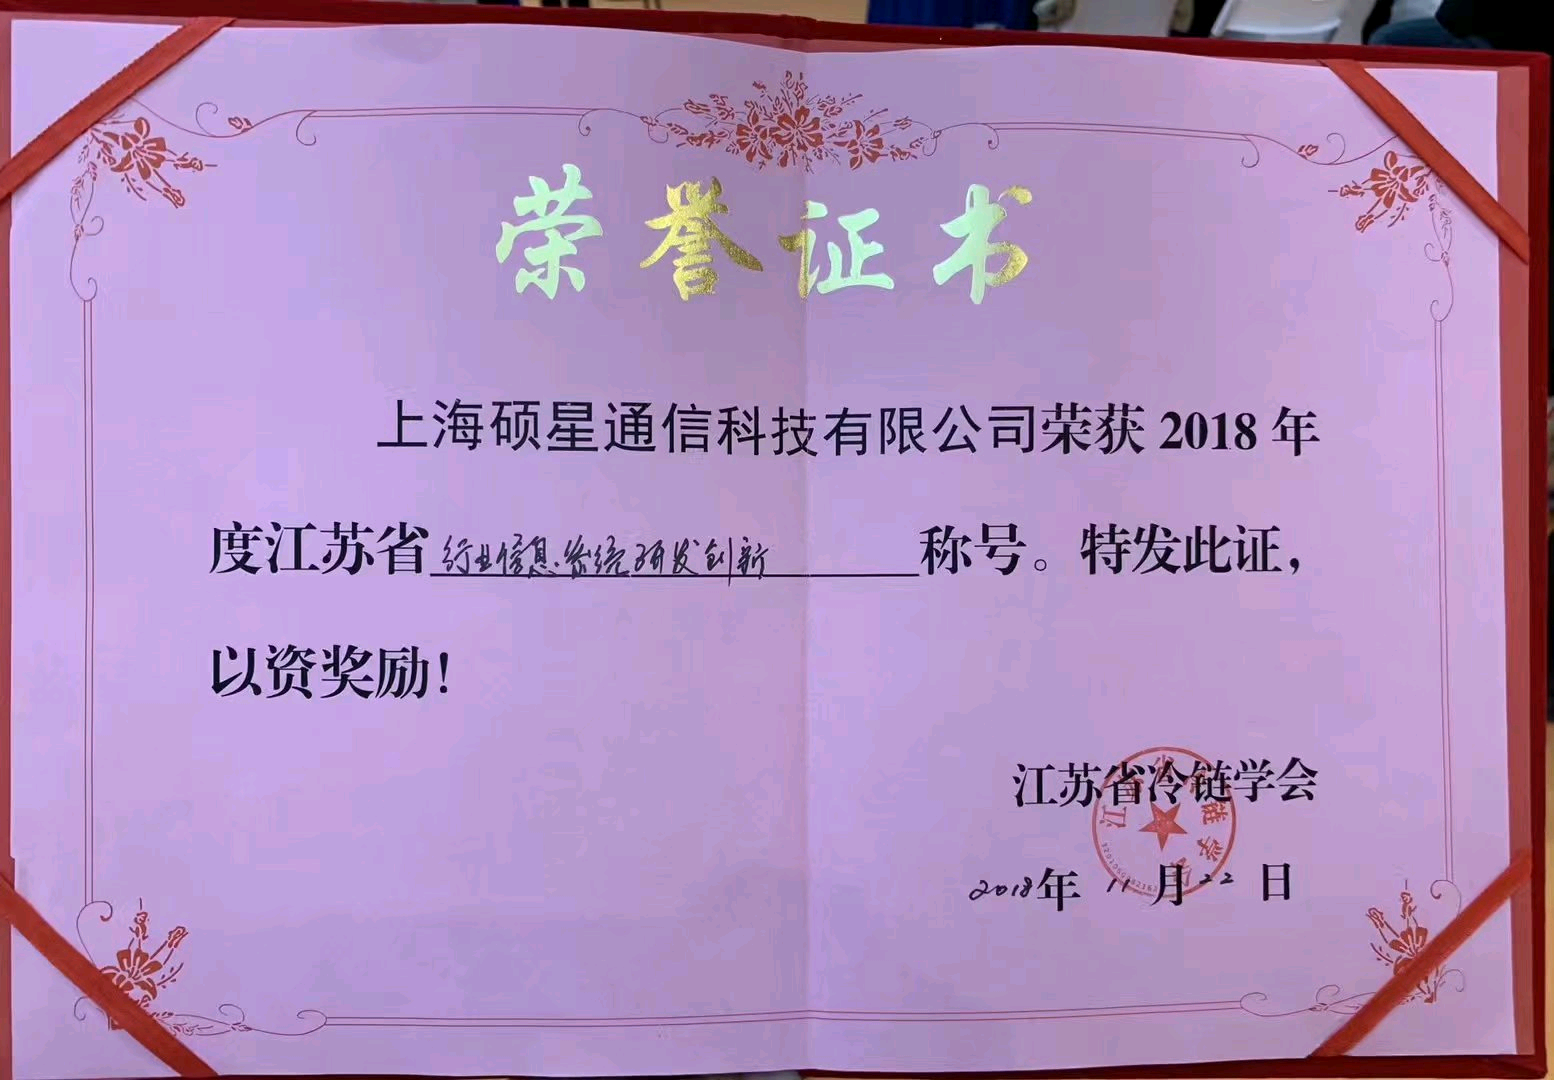 荣誉证书
上海硕星通信科技有限公司荣获 2018 年
度江苏省行业信息系统研发创新称号。特发此证，
以资奖励！
江苏省冷链学会
2018年 11 月 22 日